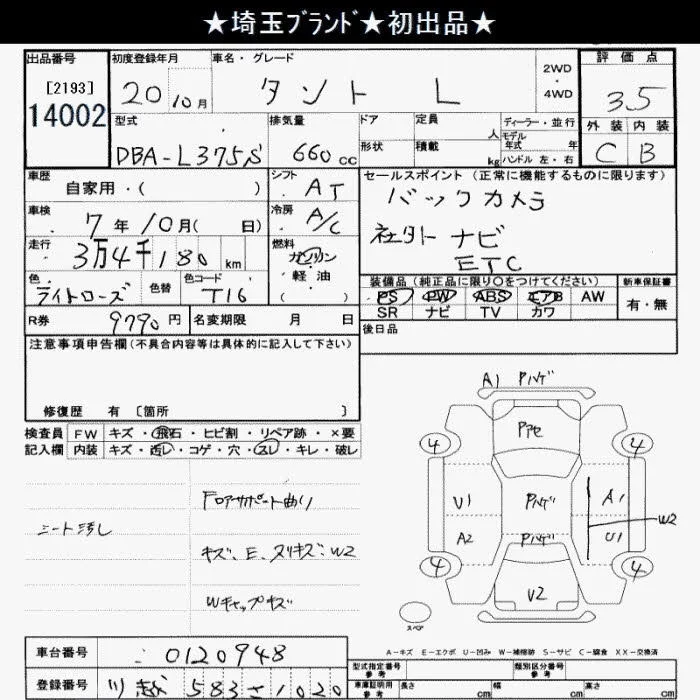 ★埼玉ﾌﾞﾗﾝﾄﾞ★初出品★
出品番号
[2193]
14002
初度登録年月
20 10月
車名・グレード
タント L
2WD
・
4WD
評価点
3.5
外装 内装
C B
型式
DBA-L375S
排気量
660 cc
ドア
形状
定員
人
積載
kg
ディーラー・並行
モデル
年式 年
ハンドル 左・右
車歴
自家用・( )
シフト
AT
セールスポイント(正常に機能するものに限ります)
バックカメラ
社外 ナビ
ETC
車検
7年10月( 日)
冷房
A/C
走行
3万4千180 km
燃料
ガソリン
・
軽油
( )
色
ライトローズ
色替
色コード
T16
装備品(純正品に限り○をつけてください)
PS PW ABS エアB AW
SR ナビ TV カワ
新車保証書
有・無
R券 9790円
名変期限 月 日
後日品
注意事項申告欄(不具合内容等は具体的に記入して下さい)
修復歴 有〔箇所 〕
検査員
記入欄
FW キズ・飛石・ヒビ割・リペア跡・×要
内装 キズ・汚レ・コゲ・穴・スレ・キレ・破レ
シート汚し
Fロアサポート曲り
キズ、E、ヌリキズ:W2
Wキャップキズ
A1 Pハゲ
4
4
U1
Pハゲ
A1
W2
A2
Pハゲ
U1
4
4
U2
スペア
A-キズ E-エクボ U-凹み W-補修跡 S-サビ C-腐食 XX-交換済
車台番号
0120948
登録番号
川越 583 さ 1020
型式指定番号
参考
類別区分番号
参考
車庫証明用
参考
長さ cm
幅 cm
高さ cm